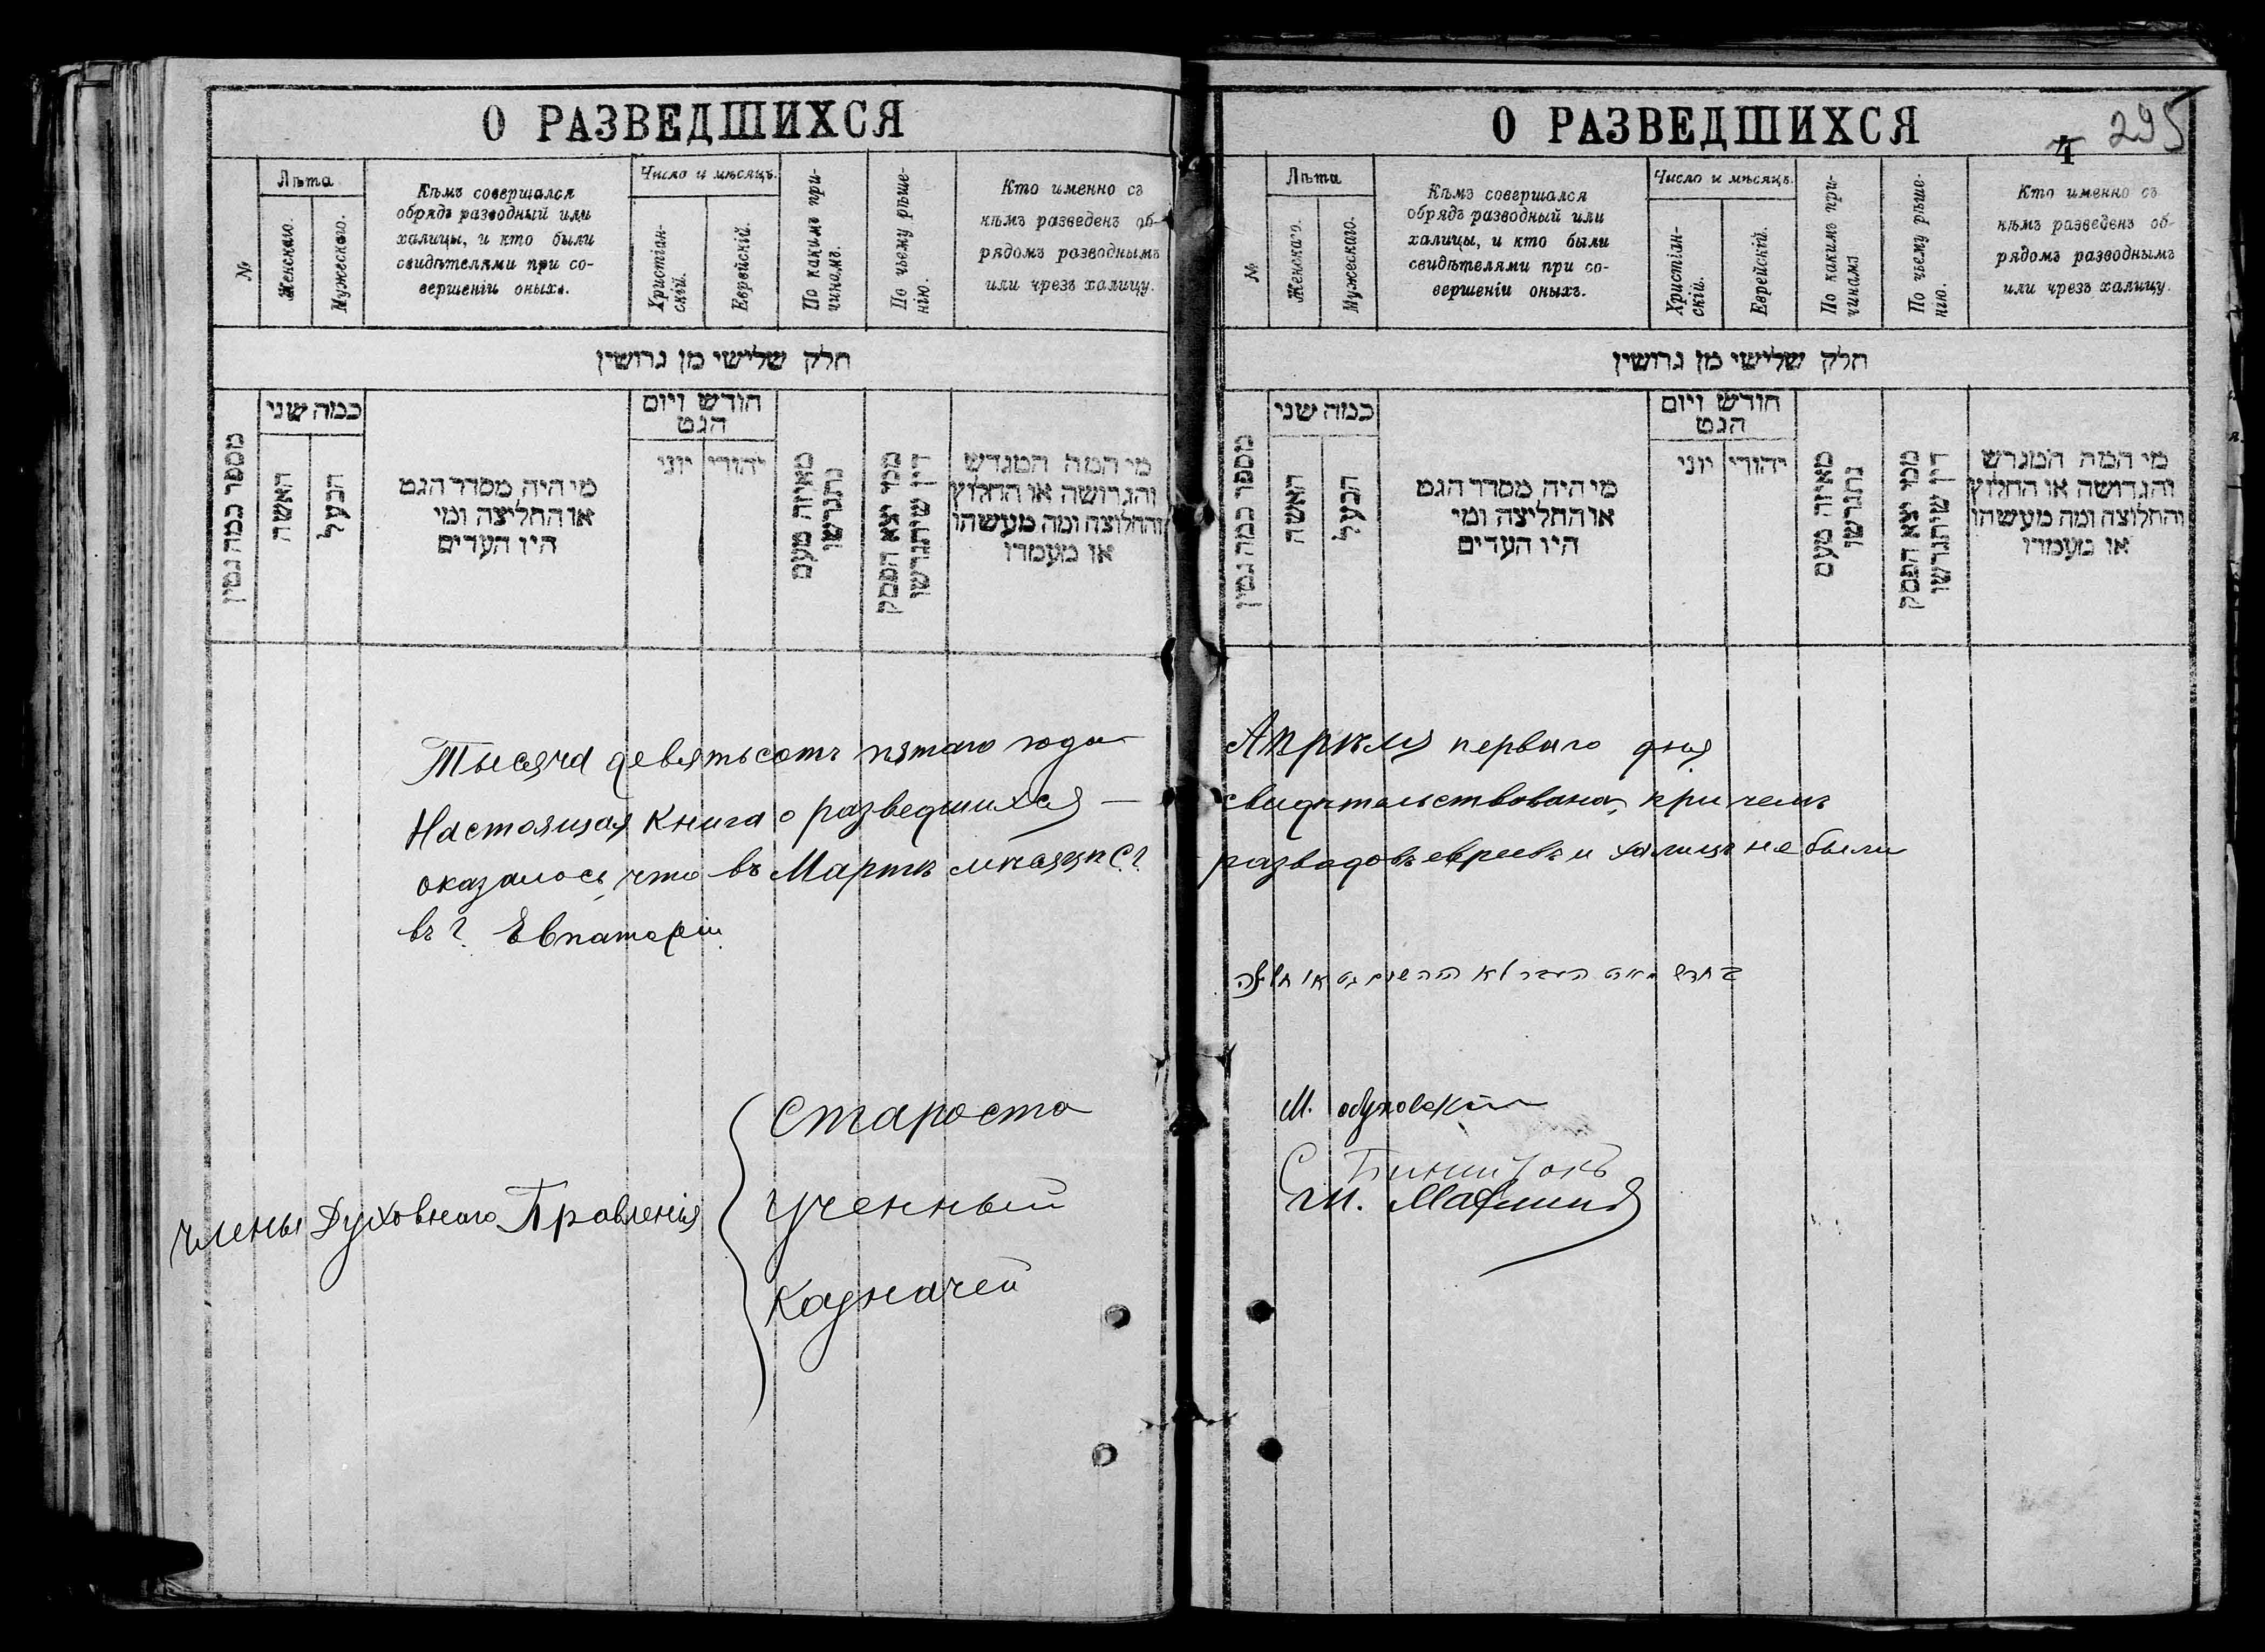 О РАЗВЕДШИХСЯ
№
Лѣта
Женскаго.
Мужескаго.
Кѣмъ совершался
обрядъ разводный или
халицы, и кто были
свидѣтелями при со-
вершеніи оныхъ.
Число и мѣсяцъ.
Христіан-
скій.
Еврейскій.
По какимъ при-
чинамъ.
По чьему рѣше-
нію.
Кто именно съ
кѣмъ разведенъ об-
рядомъ разводнымъ
или чрезъ халицу.
חלק שלישי מן גרושין
מספר כמה גטין
כמה שני
האשה
הבעל
מי היה מסדר הגט
או החליצה ומי
היו העדים
חודש ויום
הגט
יהודי יוני
מאיזה טעם
נתגרשו
ממי יצא הפסק
דין שיתגרשו
מי המה המגרש
והגרושה או החלוץ
והחלוצה ומה מעשהו
או מעמדו
Тысяча девятьсотъ пятаго года
Настоящая книга о разведшихся —
оказалось, что въ Мартѣ мѣсяцѣ с.г.
въ г. Евпаторіи
Члены Духовнаго Правленія
Староста
Ученный
Казначей
О РАЗВЕДШИХСЯ
4 295
№
Лѣта
Женскаго.
Мужескаго.
Кѣмъ совершался
обрядъ разводный или
халицы, и кто были
свидѣтелями при со-
вершеніи оныхъ.
Число и мѣсяцъ.
Христіан-
скій.
Еврейскій.
По какимъ при-
чинамъ
По чьему рѣше-
нію.
Кто именно съ
кѣмъ разведенъ об-
рядомъ разводнымъ
или чрезъ халицу.
חלק שלישי מן גרושין
מספר כמה גטין
כמה שני
האשה
הבעל
מי היה מסדר הגט
או החליצה ומי
היו העדים
חודש ויום
הגט
יהודי יוני
מאיזה טעם
נתגרשו
ממי יצא הפסק
דין שיתגרשו
מי המה המגרש
והגרושה או החלוץ
והחלוצה ומה מעשהו
או מעמדו
Апрѣля перваго дня
свидѣтельствована, при чемъ
разводовъ евреевъ и халицъ не были
М.